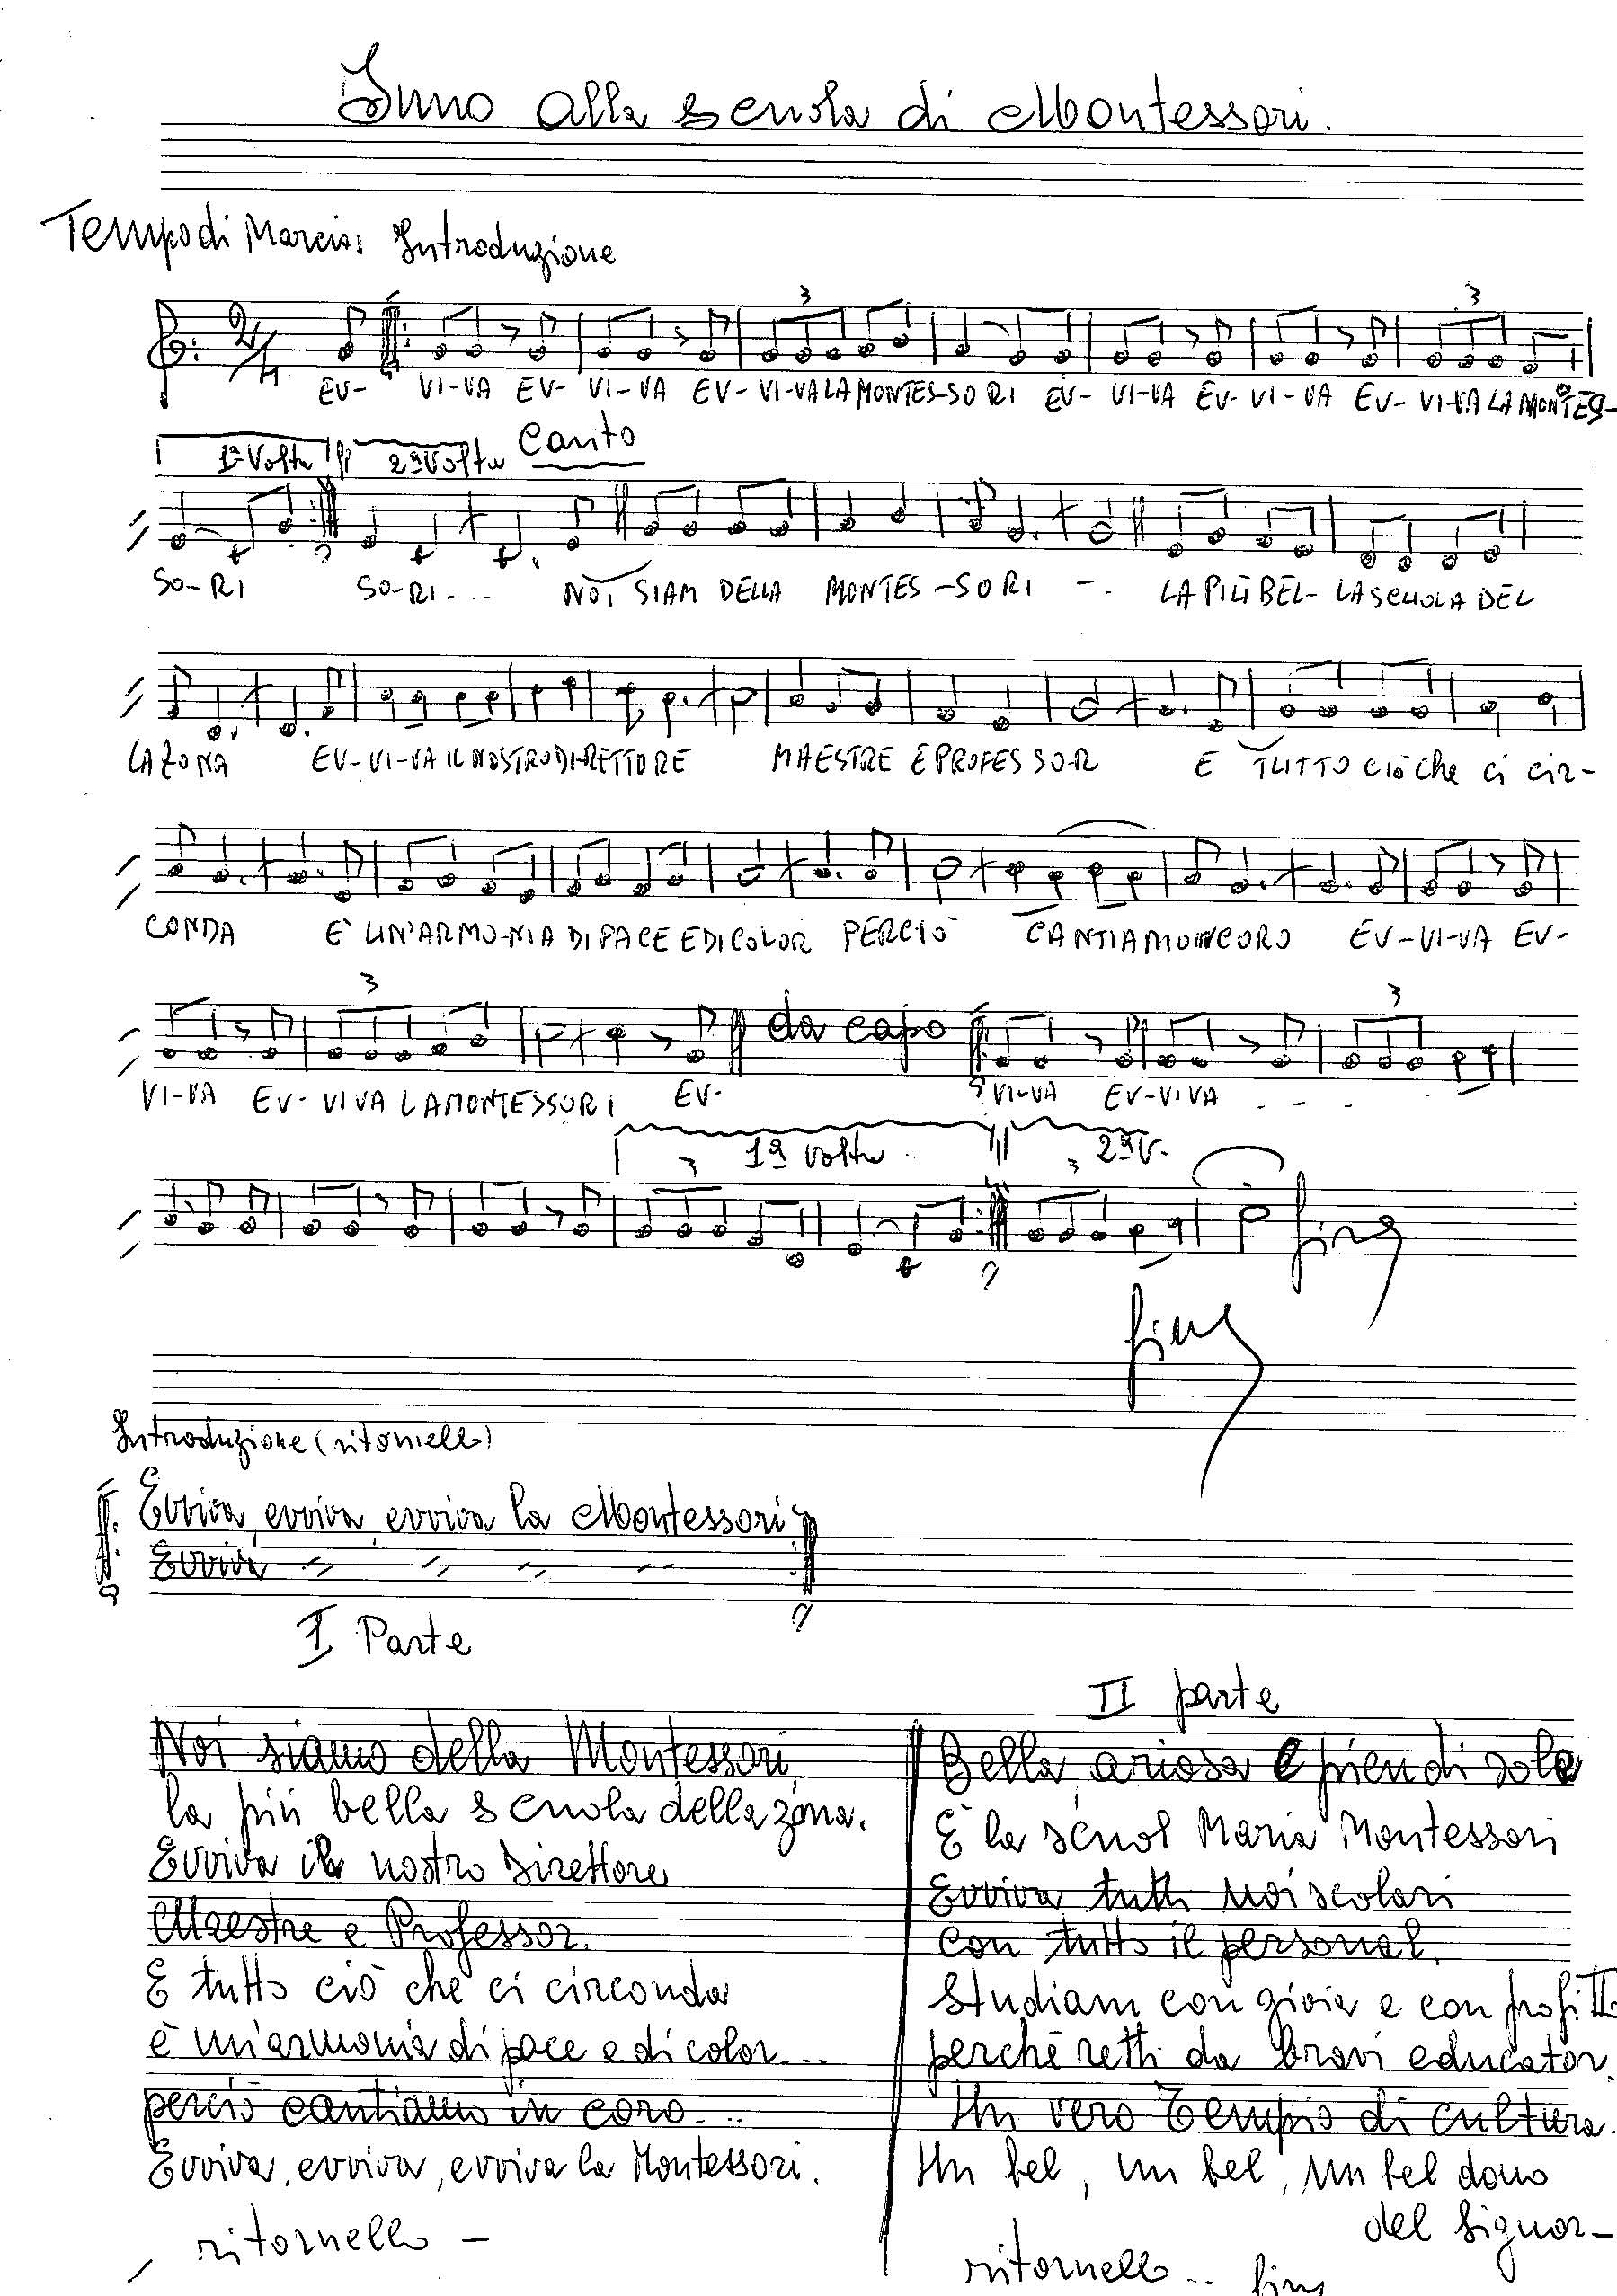 Inno alla scuola di Montessori.
Tempo di Marcia: Introduzione
2/4
3 3
EV- VI-VA EV- VI-VA EV-VI-VA LA MONTES-SORI EV- VI-VA EV-VI-VA EV-VI-VA LA MONTES-
1ª Volta 2ª Volta Canto
SO-RI SO-RI... NOI SIAM DELLA MONTES-SORI -. LA PIÙ BEL-LA SCUOLA DEL
LA ZONA EV-VI-VA IL NOSTRO DIRETTORE MAESTRE E PROFESSO-R E TUTTO CIÒ CHE CI CIR-
CONDA È UN'ARMO-NIA DI PACE E DI COLOR PERCIÒ CANTIAMO IN CORO EV-VI-VA EV-
3 da capo 3
VI-VA EV-VIVA LA MONTESSORI EV- VI-VA EV-VIVA - - - -
1ª volta 2ª V.
3 3
fine
fine
Introduzione (ritornello)
Evviva, evviva, evviva la Montessori
Evviva " " " "
I Parte
Noi siamo della Montessori,
la più bella scuola della zona.
Evviva il nostro Direttore
Maestre e Professor.
E tutto ciò che ci circonda
è un'armonia di pace e di color...
perciò cantiamo in coro...
Evviva, evviva, evviva la Montessori.
ritornello -
II parte
Bella, ariosa e pien di sole
È la scuol Maria Montessori
Evviva tutti noi scolari
con tutto il personal.
Studiam con gioia e con profitt
perchè retti da bravi educator.
Un vero Tempio di cultura.
Un bel, un bel, un bel dono
del Signor-
ritornello .. fine